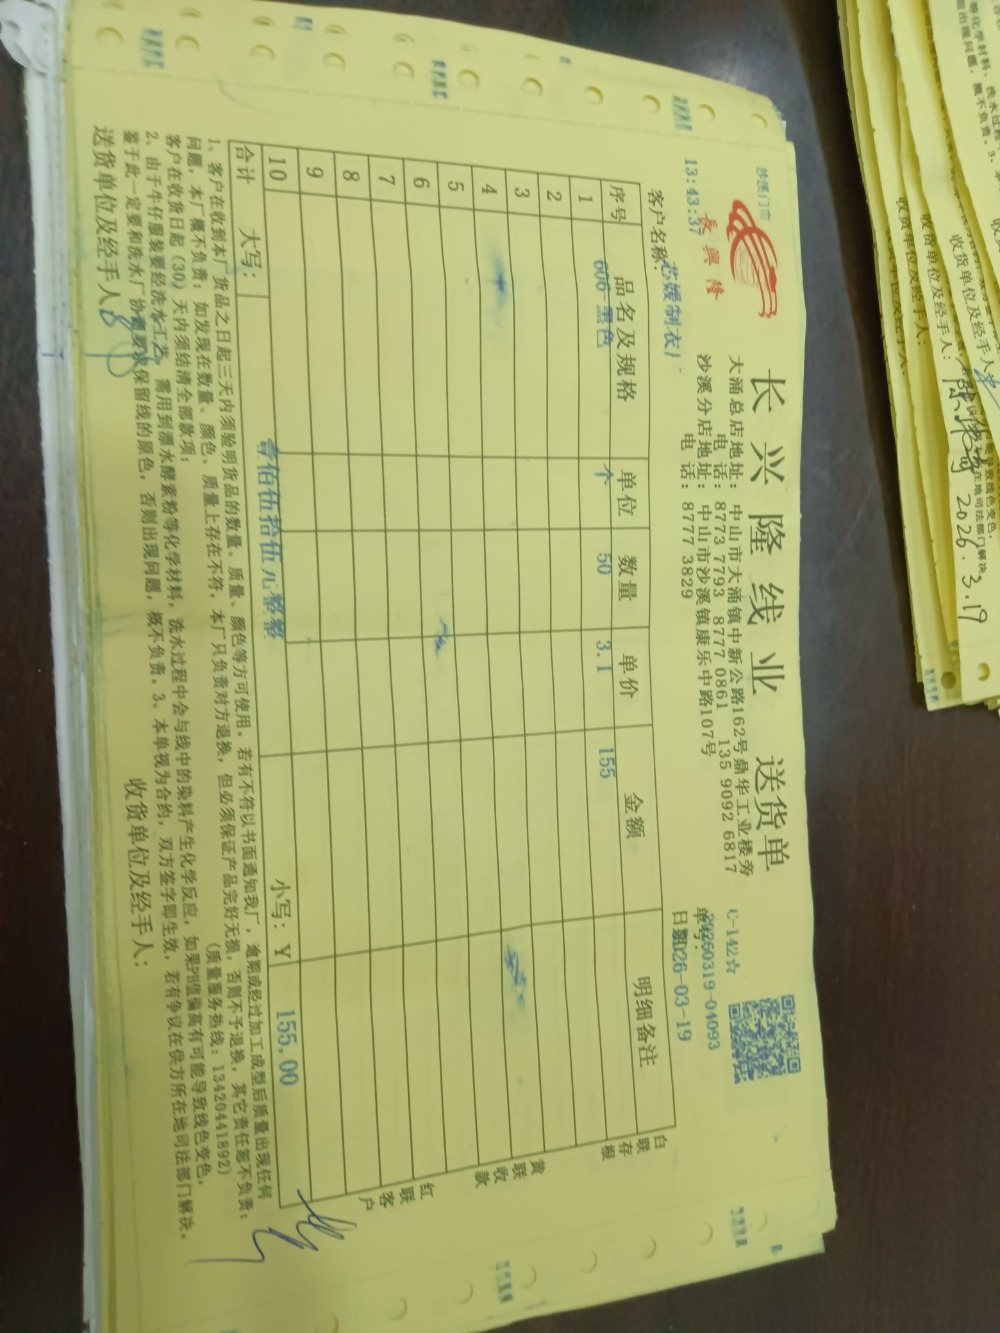 沙溪门市
長興隆
长兴隆线业 送货单
大涌总店地址：中山市大涌镇中新公路162号鼎华工业楼旁
电 话：8773 7793 8777 0861 135 9092 6817
沙溪分店地址：中山市沙溪镇康乐中路107号
电 话：8777 3829
C-142☆
单号：20260319-04093
日期：2026-03-19
13:43:37
客户名称：芯媛制衣厂
序号 品名及规格 单位 数量 单价 金额 明细备注
1 606 黑色 个 50 3.1 155
2
3
4
5
6
7
8
9
10
合计 大写： 壹佰伍拾伍元整整 小写：Y 155.00
白联存根
黄联收款
红联客户
1、客户在收到本厂货品之日起三天内须验明货品的数量、质量、颜色等方可使用。若有不符以书面通知我厂，逾期或经过加工成型后质量出现任何
问题，本厂概不负责；如发现在数量、颜色、质量上存在不符，本厂只负责对方退换，但必须保证产品完好无损，否则不予退换，其它责任恕不负责；
客户在收货日起（30）天内须结清全部款项； （质量服务热线：13420441892）
2、由于牛仔服装要经洗水工艺，需用到漂水酵素粉等化学材料，洗水过程中会与线中的染料产生化学反应，如果PH值偏高有可能导致线色变色，
鉴于此一定要和洗水厂协商要求保留线的原色，否则出现问题，概不负责。3、本单视为合约，双方签字即生效，若有争议在供方所在地司法部门解决。
送货单位及经手人：
收货单位及经手人：
收货单位及经手人：
收货单位及经手人：
收货单位及经手人：
2026.3.19